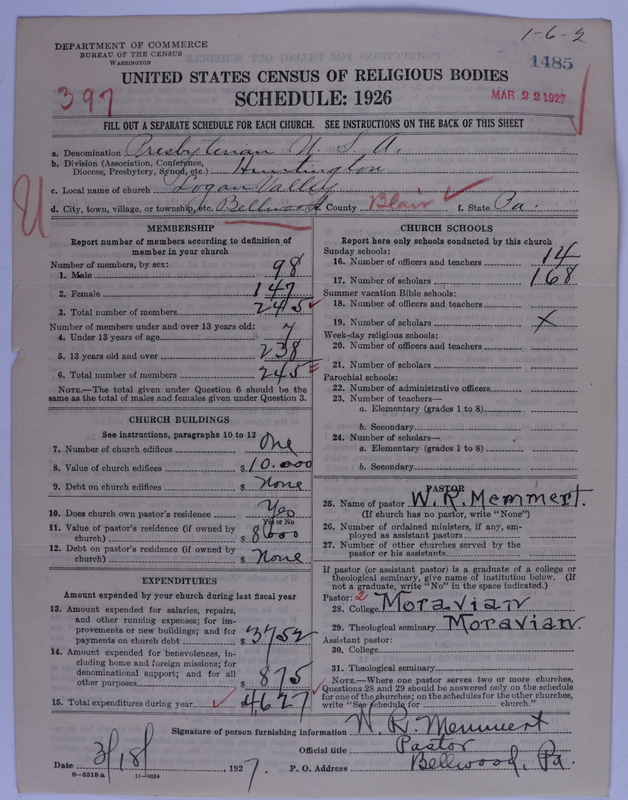 1-6-2
DEPARTMENT OF COMMERCE
BUREAU OF THE CENSUS
WASHINGTON
1485
UNITED STATES CENSUS OF RELIGIOUS BODIES
397
SCHEDULE: 1926
MAR 22 1927
FILL OUT A SEPARATE SCHEDULE FOR EACH CHURCH. SEE INSTRUCTIONS ON THE BACK OF THIS SHEET
a. Denomination Presbyterian U. S. A.
b. Division (Association, Conference,
Diocese, Presbytery, Synod, etc.) Huntington
c. Local name of church Logan Valley
d. City, town, village, or township, etc. Bellwood e. County Blair f. State Pa.
MEMBERSHIP
Report number of members according to definition of
member in your church
Number of members, by sex:
1. Male 98
2. Female 147
3. Total number of members 245
Number of members under and over 13 years old:
4. Under 13 years of age 7
5. 13 years old and over 238
6. Total number of members 245
NOTE.—The total given under Question 6 should be the
same as the total of males and females given under Question 3.
CHURCH BUILDINGS
See instructions, paragraphs 10 to 12
7. Number of church edifices One
8. Value of church edifices $ 10.000
9. Debt on church edifices $ None
10. Does church own pastor's residence Yes
Yes or No
11. Value of pastor's residence (if owned by
church) $ 8000
12. Debt on pastor's residence (if owned by
church) $ None
EXPENDITURES
Amount expended by your church during last fiscal year
13. Amount expended for salaries, repairs,
and other running expenses; for im-
provements or new buildings; and for
payments on church debt $ 3752
14. Amount expended for benevolences, in-
cluding home and foreign missions; for
denominational support; and for all
other purposes $ 875
15. Total expenditures during year 4,627
CHURCH SCHOOLS
Report here only schools conducted by this church
Sunday schools:
16. Number of officers and teachers 14
17. Number of scholars 168
Summer vacation Bible schools:
18. Number of officers and teachers
19. Number of scholars X
Week-day religious schools:
20. Number of officers and teachers
21. Number of scholars
Parochial schools:
22. Number of administrative officers
23. Number of teachers—
a. Elementary (grades 1 to 8)
b. Secondary
24. Number of scholars—
a. Elementary (grades 1 to 8)
b. Secondary
PASTOR
25. Name of pastor W. R. Memmert.
(If church has no pastor, write "None")
26. Number of ordained ministers, if any, em-
ployed as assistant pastors
27. Number of other churches served by the
pastor or his assistants
If pastor (or assistant pastor) is a graduate of a college or
theological seminary, give name of institution below. (If
not a graduate, write "No" in the space indicated.)
Pastor: 2
28. College Moravian
29. Theological seminary Moravian
Assistant pastor:
30. College
31. Theological seminary
NOTE.—Where one pastor serves two or more churches,
Questions 28 and 29 should be answered only on the schedule
for one of the churches; on the schedules for the other churches,
write "See schedule for church."
Signature of person furnishing information W. R. Memmert
Official title Pastor
Date 3/18/ 1927. P. O. Address Bellwood, Pa.
8-5318 a 11-9054